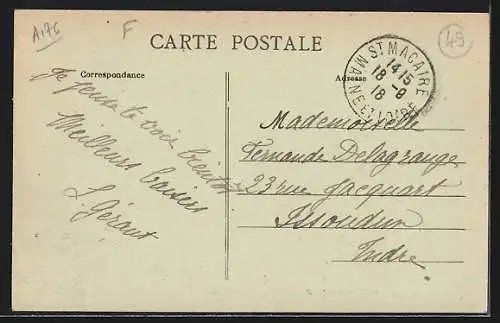 A176
F
49
CARTE POSTALE
Correspondance
Adresse
ST MACAIRE
14 15
18 - 9
18
MAINE ET LOIRE
Je pense te voir bientôt
Meilleurs baisers
L. Géraut
Mademoiselle
Fernande Delagrange
23 rue Jacquart
Issoudun
Indre